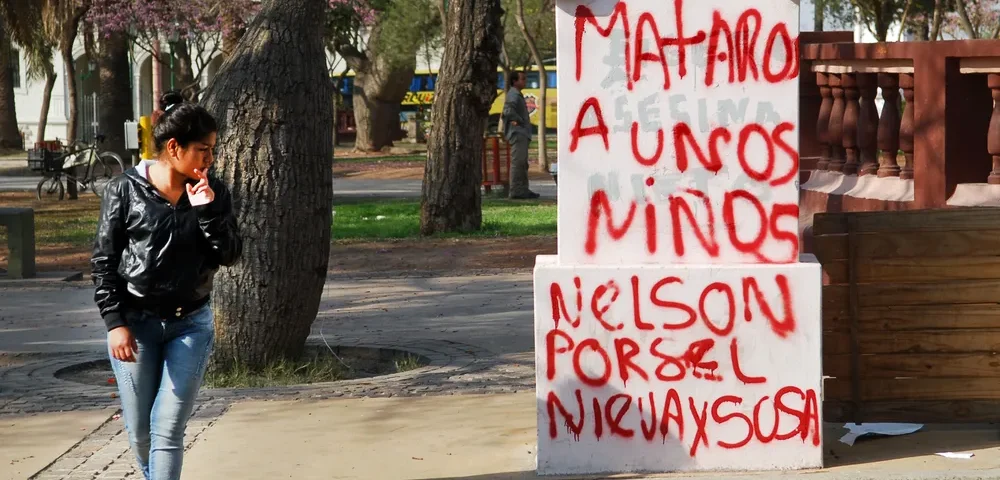 MATARON
A UNOS
NIÑOS
NELSON
PORSEL
NIEVAYSOSA